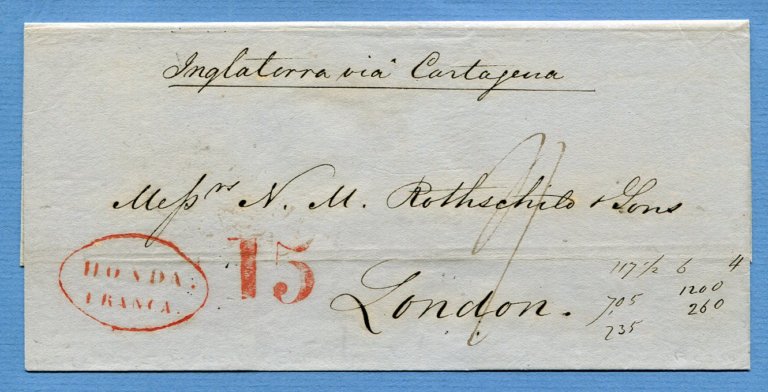 Inglaterra via Cartagena
Messrs N. M. Rothschild & Sons
HONDA.
FRANCA.
15
London.
117 1/2 6 4
705 1200
235 260